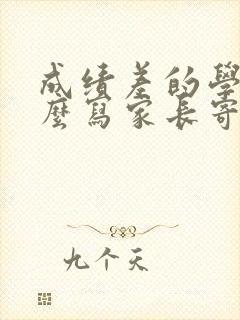 成绩差的學
麼寫家長寄
九个天